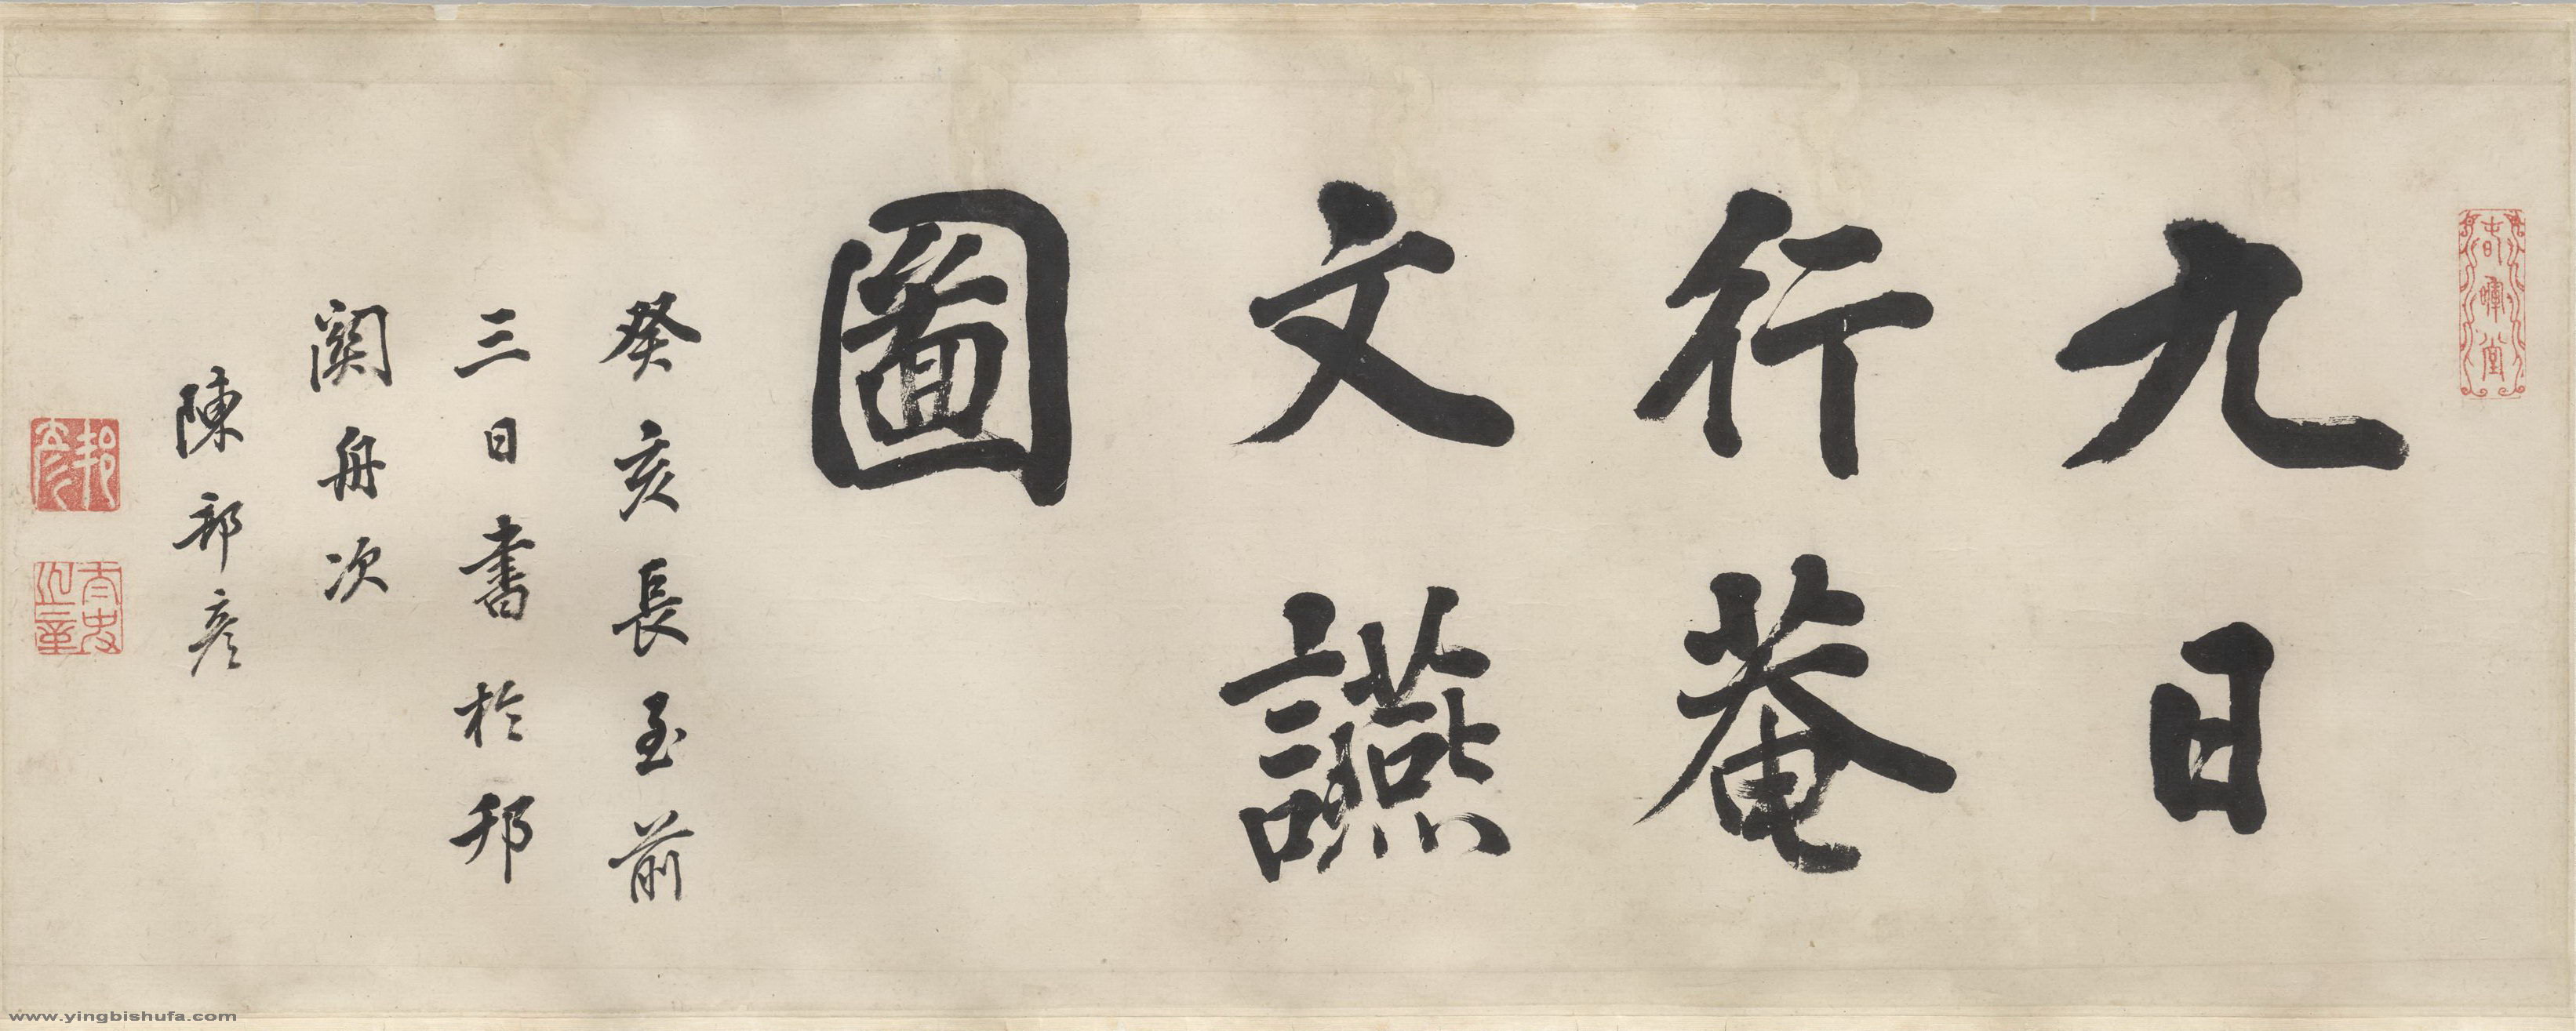 九日
行菴
文讌
圖
癸亥長至前
三日書於邗
關舟次
陳邦彥
春暉堂
邦彥
www.yingbishufa.com